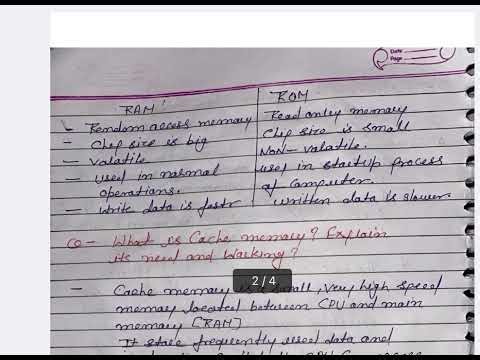 Date
Page
RAM
ROM
- Rendom access memory
Read only memory
- Chip size is big
Chip size is small
- Valatile
Non-volatile.
used in normal operations.
used in startup process of Computer.
- Write data is fastr
written data is slower.
Q - What is Cache memory? Explain
its need and Working?
2/4
- Cache memory is small, very high speed
memory located between CPU and main
memory [RAM]
It stale frequently used data and